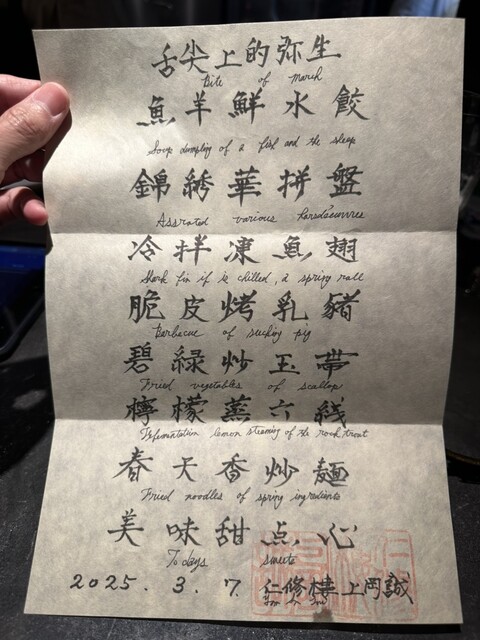 舌尖上的弥生
Bite of march
魚羊鮮水餃
Soup dumpling of a fish and the sheep
錦綉華拼盤
Assrated various horsdoeuvres
冷拌凍魚翅
Shark fin if is chilled, a spring roll
脆皮烤乳豬
Barbecue of sucking pig
碧緑炒玉帯
Fried vegetables of scallop
檸檬蒸六线
lemon steaming of the rock trout
春天香炒麺
Fried noodles of spring ingredients
美味甜点心
Todays sweets
2025. 3. 7. 仁修樓上岡誠